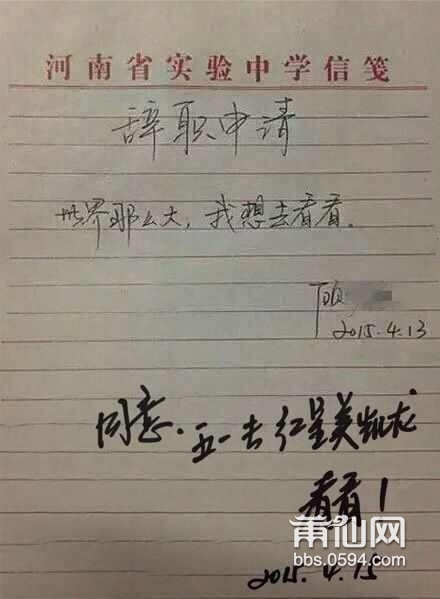 河南省实验中学信笺
辞职申请
世界那么大，我想去看看．
顾
2015.4.13
同意．五一去红星美凯龙
看看！
2015.4.15
莆仙网
bbs.0594.com